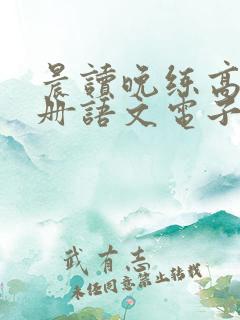 晨讀晚练高
册語文電子
武有志
未经同意禁止转载